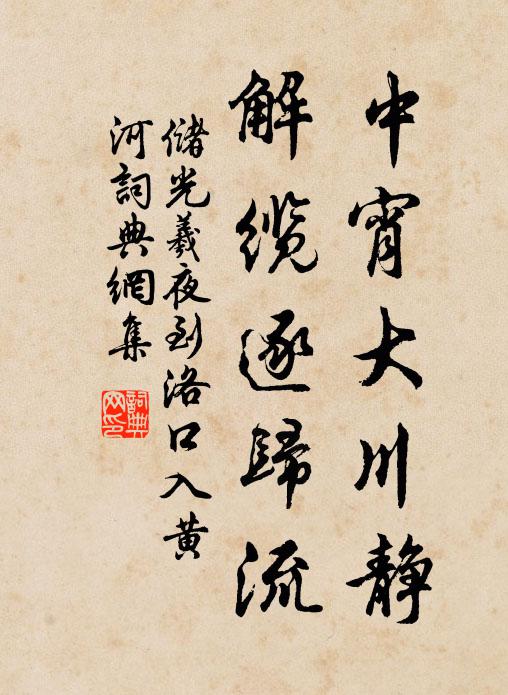 中宵大川静
解缆逐歸流
儲光羲夜到洛口入黄
河詞典網集
詞典
网印